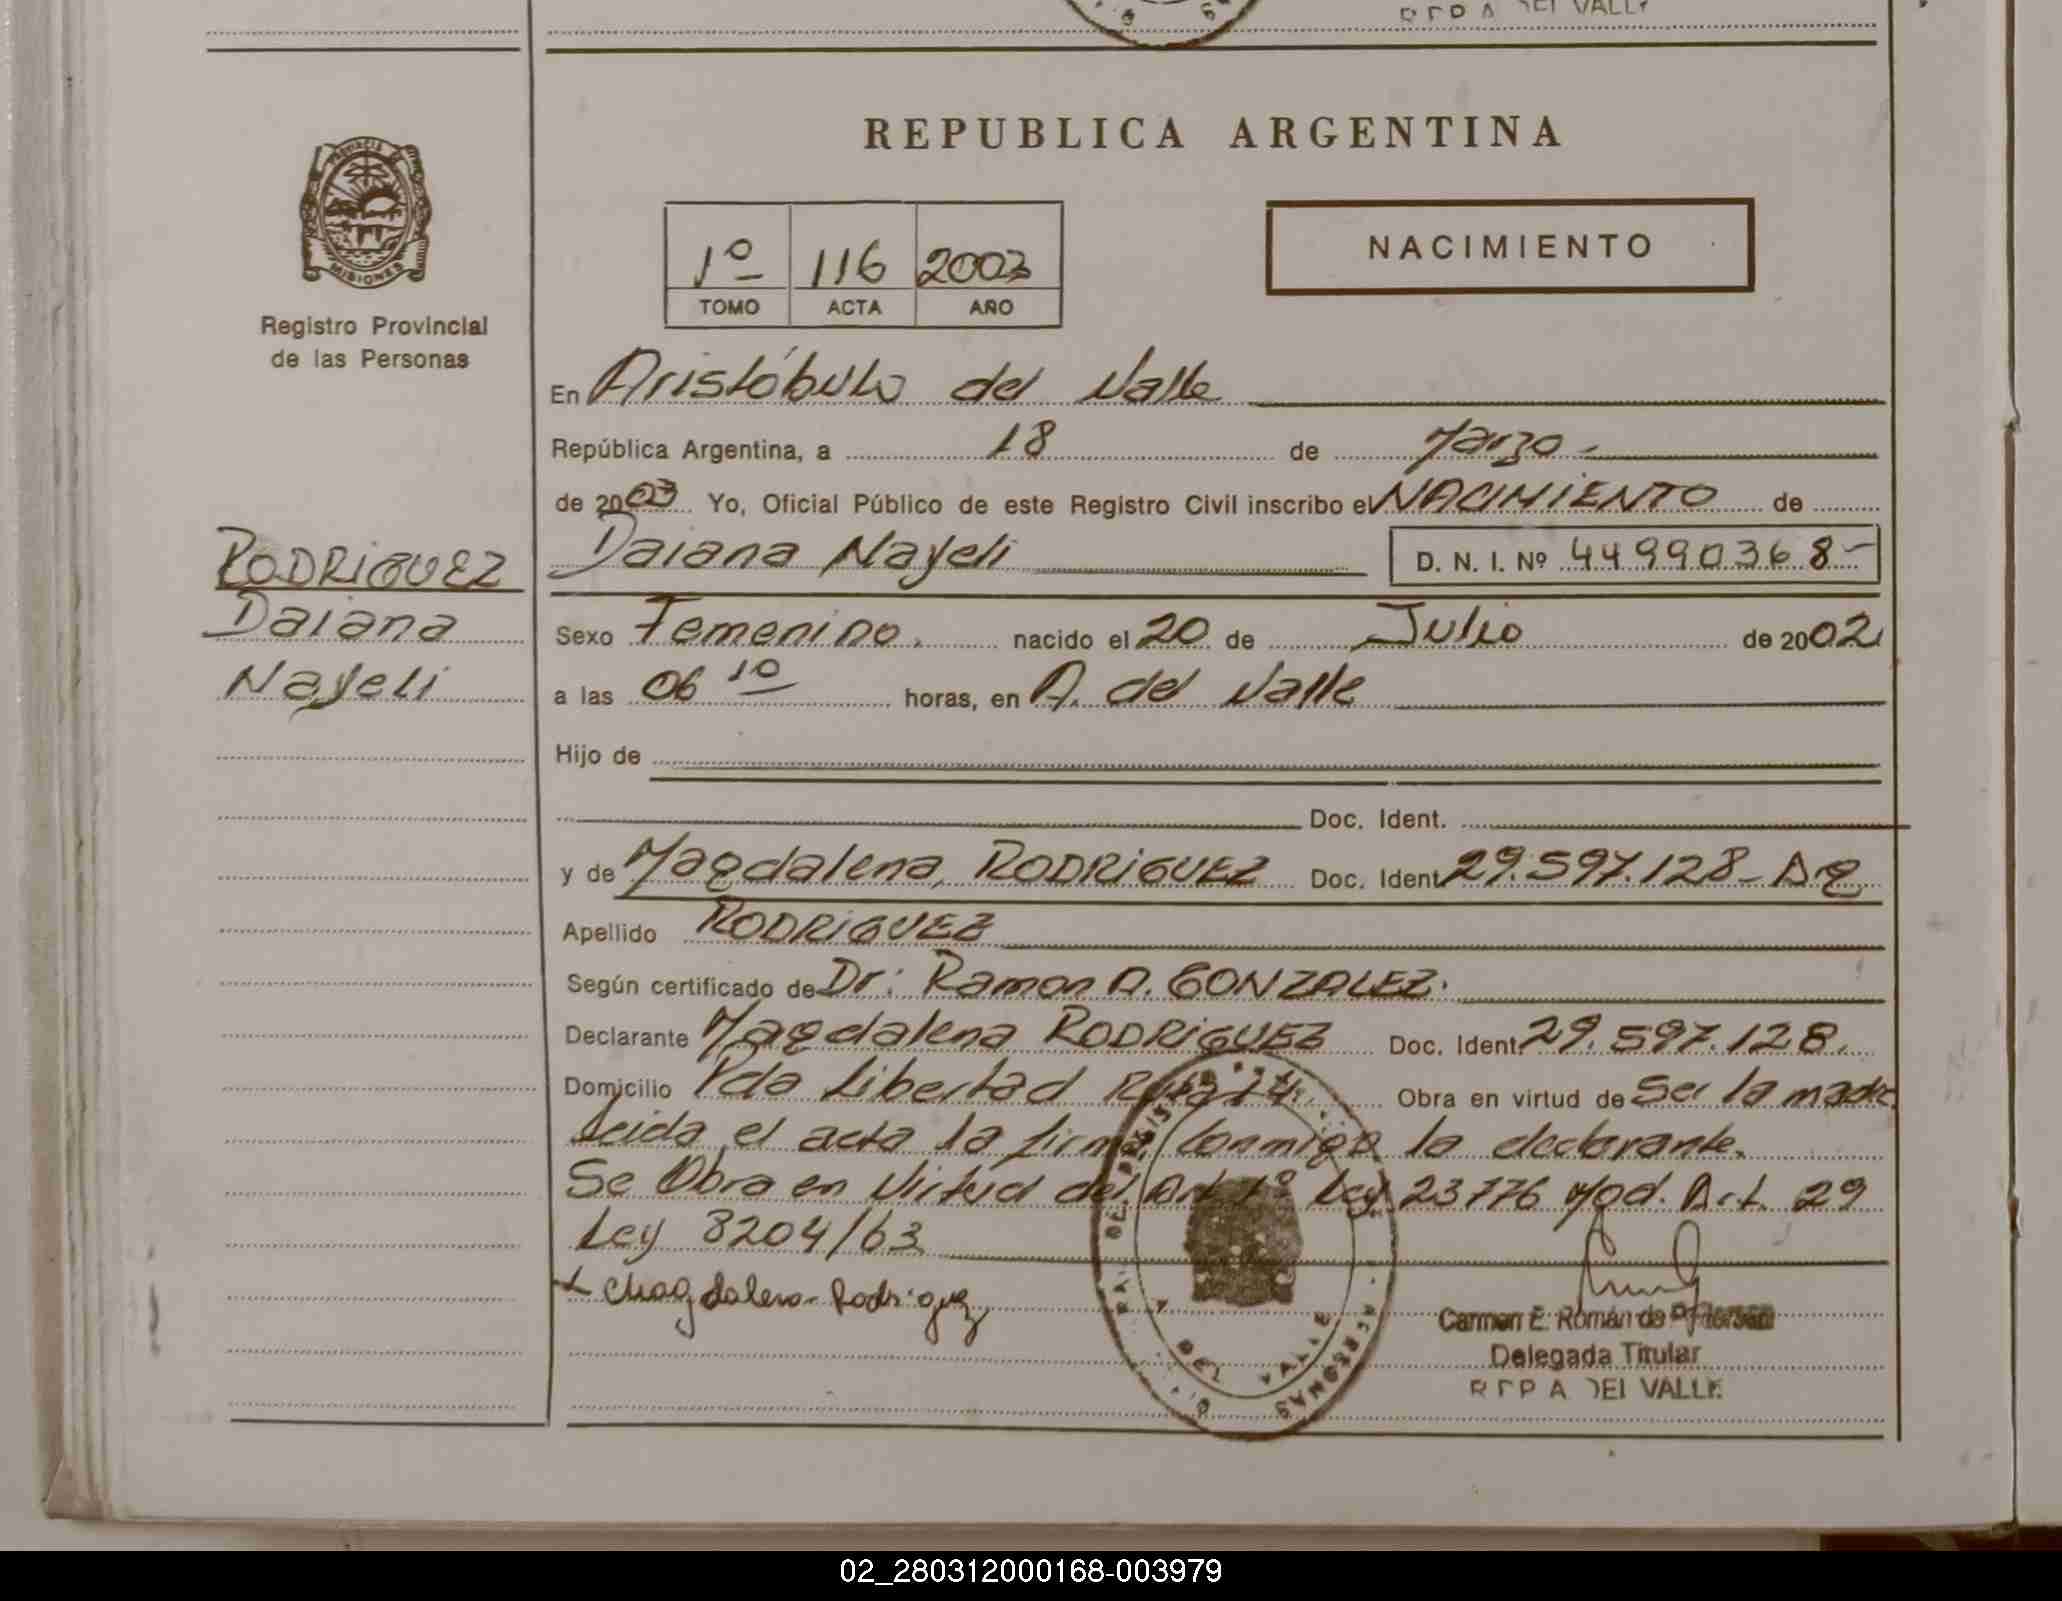 REPUBLICA ARGENTINA
PROVINCIA DE MISIONES
Registro Provincial
de las Personas
1º 116 2003
TOMO ACTA AÑO
NACIMIENTO
En Aristóbulo del Valle
República Argentina, a 18 de Marzo.
de 2003 Yo, Oficial Público de este Registro Civil inscribo el NACIMIENTO de
RODRIGUEZ
Daiana
Nayeli
Daiana Nayeli D. N. I. Nº 44990368-
Sexo Femenino. nacido el 20 de Julio de 2002
a las 06 10 horas, en A. del Valle
Hijo de
Doc. Ident.
y de Magdalena, RODRIGUEZ Doc. Ident. 29.597.128- Arg
Apellido RODRIGUEZ
Según certificado de Dr: Ramon A. GONZALEZ.
Declarante Magdalena RODRIGUEZ Doc. Ident. 29.597.128.
Domicilio Pdo Libertad Ruta 14. Obra en virtud de Ser la madre.
Leida el acta la firma Conmigo la declarante.
Se Obra en Virtud del Art 1º Ley 23776 Mod. Art. 29
Ley 8204/63
x Magdalena Rodriguez
Carmen E. Román de
Delegada Titular
R.P. A. DEL VALLE
DEL VALLE
02_280312000168-003979